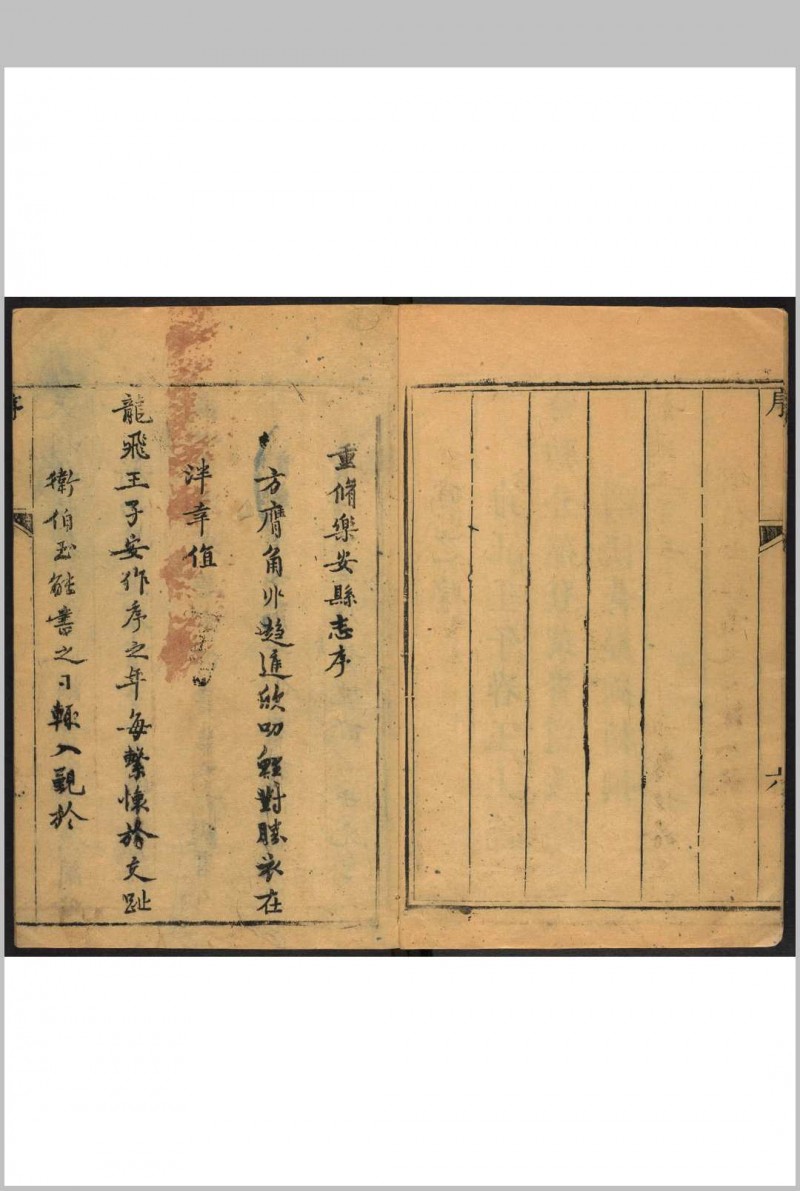 序
六
重脩樂安縣志序
方膺角丱趨進欣叨鯉對勝衣在
泮幸值
龍飛王子安作序之年每繫懷於交趾
衛伯玉能書之日輒入覲於
序